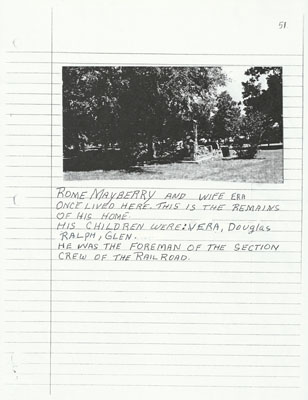 51
ROME MAYBERRY AND WIFE ERA
ONCE LIVED HERE. THIS IS THE REMAINS
OF HIS HOME.
HIS CHILDREN WERE: VERA, Douglas
RALPH, GLEN.
HE WAS THE FOREMAN OF THE SECTION
CREW OF THE RAILROAD.